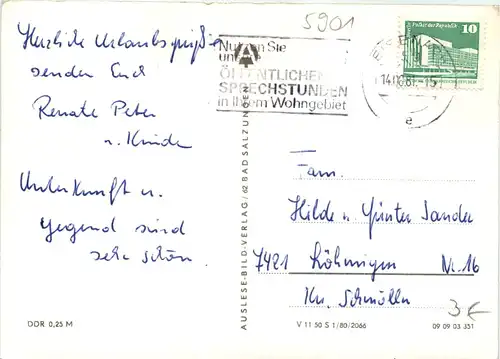 5901
Herzliche Urlaubsgrüße
senden Euch
Renate Peter
u. Kinder
Unterkunft u.
Gegend sind
sehr schön.
Nutzen Sie
unsere
ÖFFENTLICHEN
SPRECHSTUNDEN
in Ihrem Wohngebiet
Palast der Republik
10
14.
e
AUSLESE-BILD-VERLAG/62 BAD SALZUNGEN
Fam.
Hilde u. Günter Sander
7421 Löhmigen Nr. 16
Kr. Schmölln
3€
DDR 0,25 M
V 11 50 S 1/80/2066
09 09 03 351